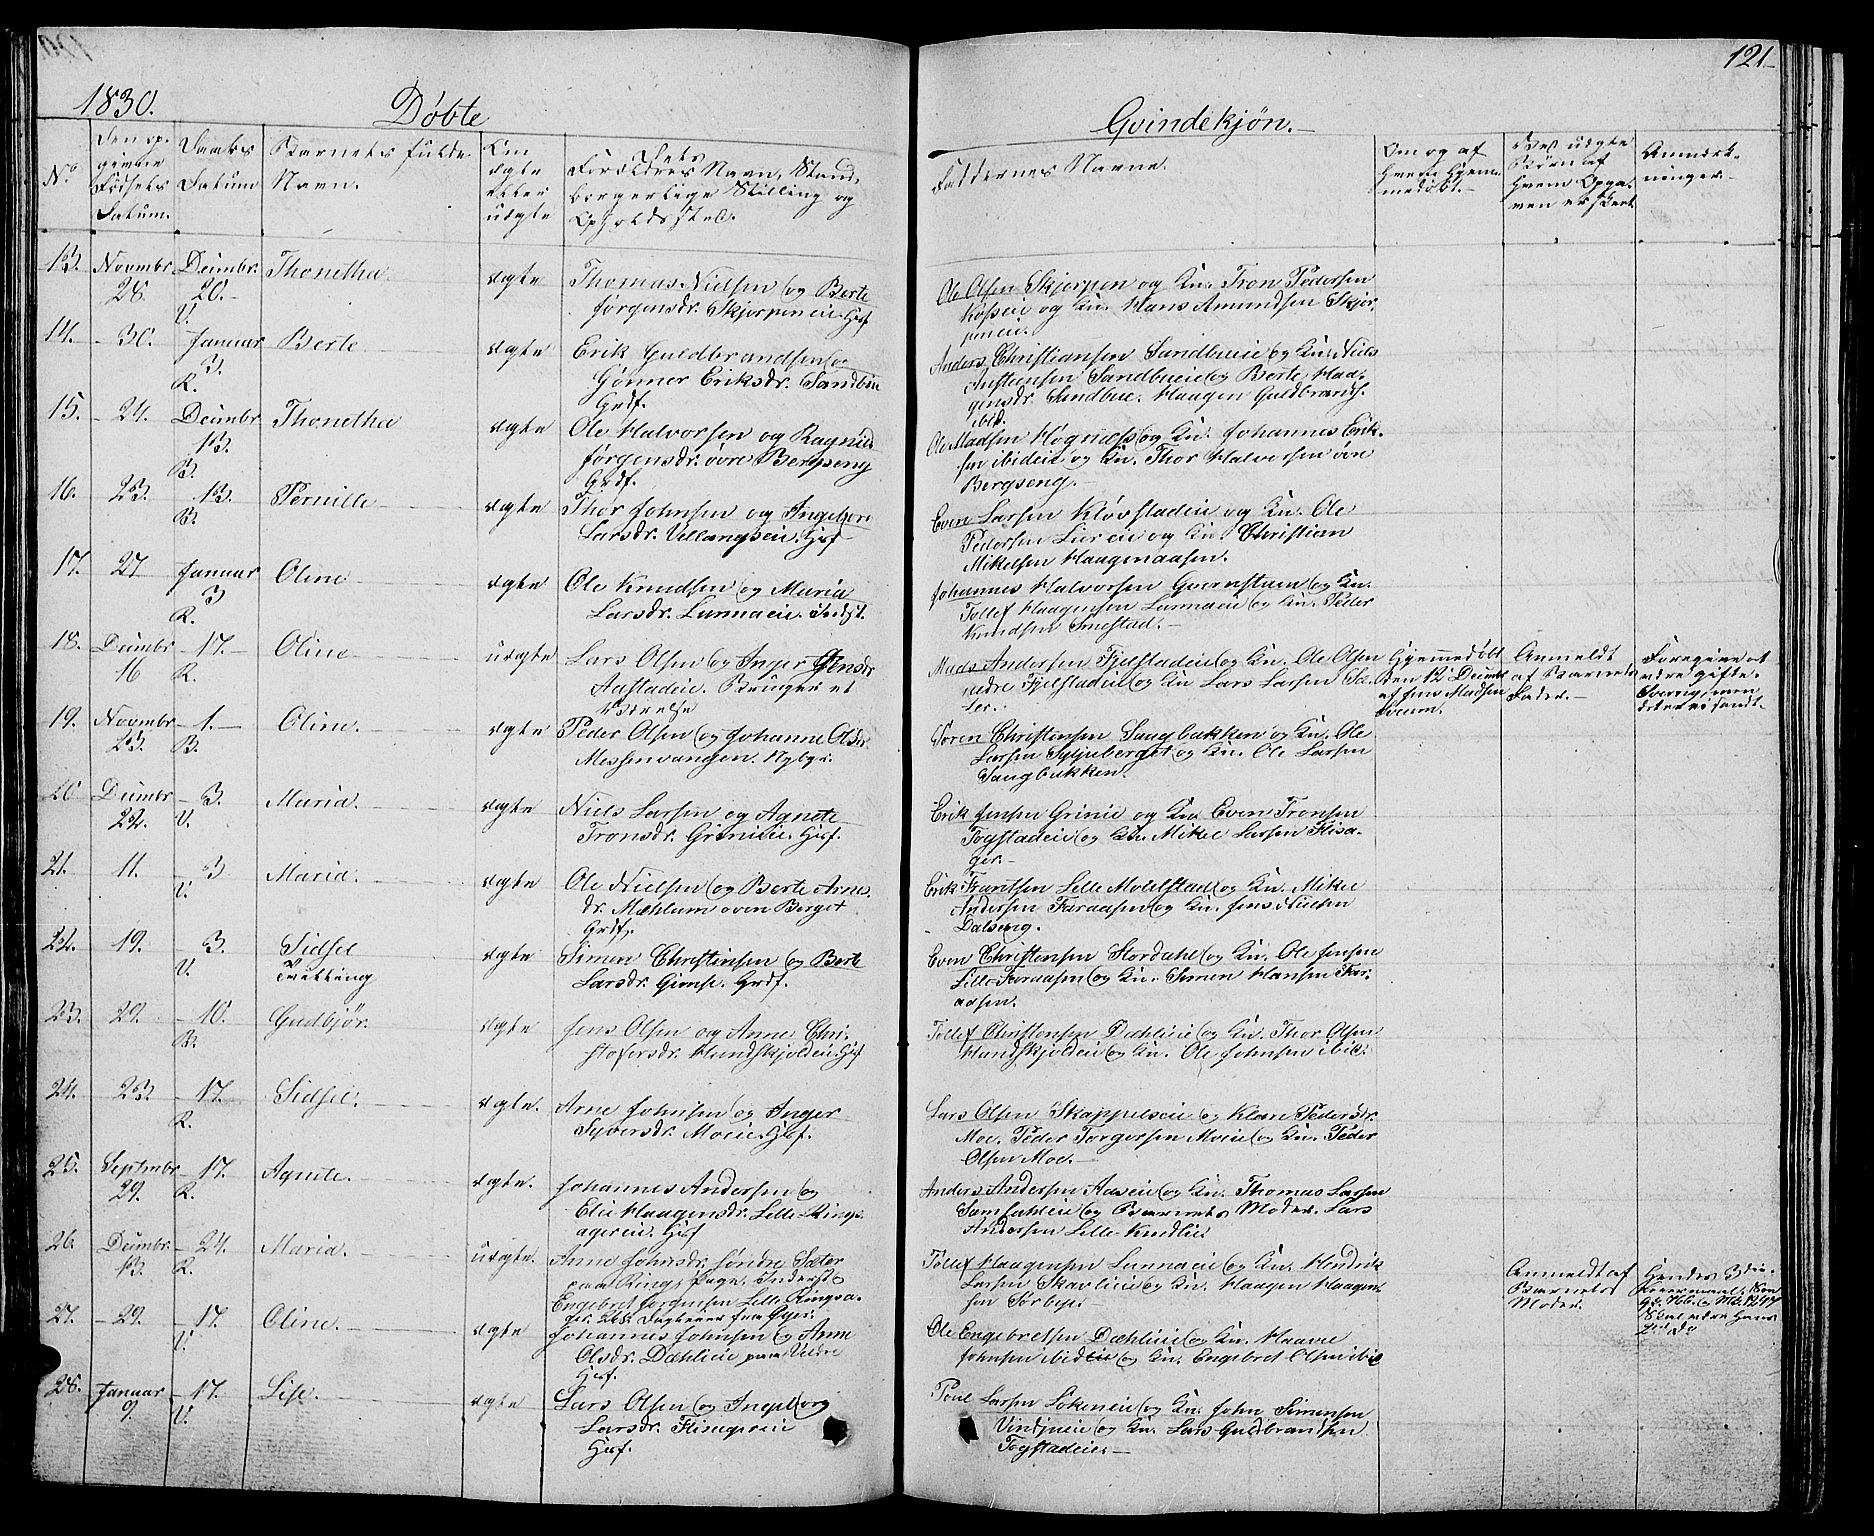 121
1830. Døbte Qvindekjøn.
No Den op- givne Fødsels Datum.
Daabs Datum
Barnets fulde Navn.
Om ægte eller uægte
Dets Forældres Navn, Stand, borgerlige Stilling og Opholdssted.
Faddernes Navne.
Om og af Hvem Hjemmedøbt.
Ved uægte Børn af Hvem Opgaven er skeet
Anmærkninger.
13. Novmbr 28. Decmbr. 20. V. Thonetha ægte
Thomas Nielsen og Berte
Jørgensdr. Skjørpeneie. Hsf
Ole Olsen Skjørpen og Kn. Tron Pedersen
og Kn. Hans Amundsen Skjør-
peneie.
14. - 30. Januar 3. R. Berte ægte
Erik Guldbrandsen og
Gønner Eriksdr. Sandbue
Grdf.
Anders Christiansen Sandbueie og Kn. Niels
Sandbueie og Berte Haa-
gensdr. Sandbue. Haagen Guldbrands.
ibid.
15. - 24. Decmbr 13. B. Thonetha ægte
Ole Halvorsen og Ragnild
Jørgensdr. øvre Bergseng
Grdf.
Ole Madsen Høgnæss og Kn. Johannes Erik-
sen ibideie og Kn. Thor Halvorsen øvre
Bergseng.
16. 23. 13. B. Pernille ægte
Thor Johnsen og Ingeborg
Larsdr. Hsf
Even Larsen Kløvstadeie og Kn. Ole
Pedersen Liereie og Kn. Christian
Mikelsen Haagenaasen.
17. 27 Januar 3 R. Oline ægte
Ole Knudsen og Maria
Larsdr. Lunnaeie. Inderst.
Johannes Halvorsen Qvernstuen og Kn.
Tollef Haagensen Lunnaeie og Kn. Peder
Knudsen Smestad.
18. Decmbr 16 - 17. R. Oline uægte
Lars Olsen og Inger Jensdr
Aastadeie. Bruger et
Værelse
Mads Andersen Fjelstadeie og Kn. Ole Olsen
nedre Fjelstadeie og Kn Lars Larsen
Hjemmedøbt
den 12 Decmbr
af Jens Madsen
Anmeldt
af Barnets
Fader.
Foregive at
være gifte.
i Sverrig, men
det er ei sandt.
19. Novmbr 23. - 1. B. Oline. ægte
Peder Olsen og Johanne Olsdr.
Messenvangen. Nybyg.
Søren Christensen Saugbakken og Kn. Ole
Larsen Syljuberget og Kn. Ole Larsen
Saugbakken.
20 Decmbr 22. - 3. V. Maria. ægte
Niels Larsen og Agnete
Tronsdr. Grinieie. Hsf.
Erik Jensen Grinie og Kn. Even Tronsen
Togstadeie og Kn. Mikel Larsen Flisa-
ger.
21. 11. - 3 V. Maria. ægte
Ole Nielsen og Berte Arnes-
dr. Mæhlum oven Berget
Grdf.
Erik Frantsen Lille Molstad og Kn. Mikel
Andersen Faraasen og Kn. Jens Nielsen
Dalseng.
22. 19. - 3. V. Sidsel Tvilling ægte
Simen Christensen og Berte
Larsdr. Gimse. Grdf.
Even Christensen Stordahl og Kn. Ole Jensen
Lille-Faraasen og Kn. Simen Hansen Far-
aasen.
23. 29. - 10. B. Gudbjør. ægte
Jens Olsen og Anne Chri-
stofersdr. Hundskjoldeie. Hsf
Tollef Christensen Dæhlieie og Kn. Thor Olsen
Hundskjoldeie og Kn. Ole Johnsen ibid.
24. 23. 17. R. Sidsel. ægte.
Arne Johnsen og Inger
Syversdr. Moeie. Hsf.
Lars Olsen Skappelseie og Klare Pedersdr.
Moe. Peder Torgersen Moeie og Kn. Peder
Olsen Moe.
25. Septmbr 29. - 17. R. Agnete. ægte.
Johannes Andersen og
Elie Haagensdr. Lille-Rings-
agereie. Hsf
Anders Andersen Aaseie og Kn. Thomas Larsen
Samsahleie og Barnets Moder. Lars
Andersen Lille-Kindlie
26. Decmbr 13. - 24. R. Maria. uægte.
Anne Johnsdr. søndre Sæter
paa Rings. Inderst og
Engebret Jørgensen Lille Ringsa-
ger.
Tollef Haagensen Lunnaeie og Kn. Hendrik
Larsen Skavlieie og Kn. Haagen Haagen-
sen Sørbye.
Anmeldt af
Barnets
Moder.
Hendes 3die
Leiermaal.
27. - 29. - 17. V. Oline. ægte
Johannes Johnsen og Anne
Olsdr. Dæhlieie paa Veldre
Hsf.
Ole Engebretsen Dæhlieie og Kn. Haavel
Johnsen ibideie og Kn. Engebret Olsen ibid
28. Januar 9. - 17. V. Lise. ægte
Lars Olsen og Ingeborg
Larsdr.
Hsf.
Poul Larsen Løkeneie og Kn. John Simensen
Vindjueie og Kn. Lars Guldbrandsen
Togstadeie.